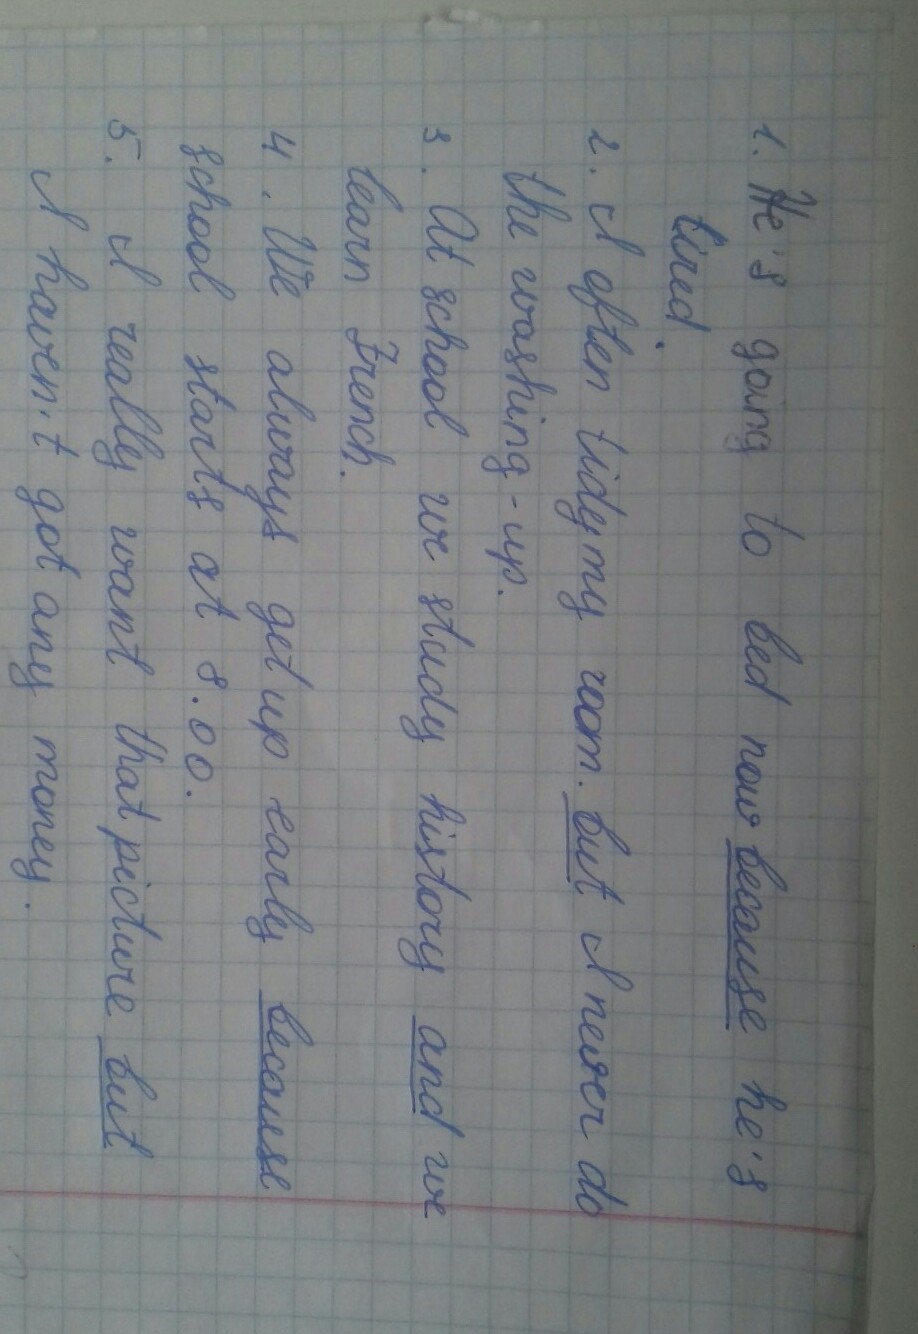 1. He's going to bed now because he's
tired.
2. I often tidy my room. but I never do
the washing-up.
3. At school we study history and we
learn French.
4. We always get up early because
school starts at 8.00.
5. I really want that picture but
I haven't got any money.